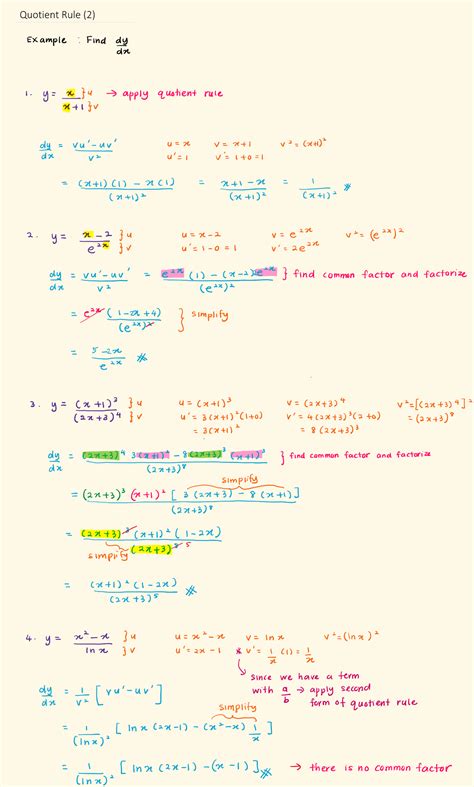 Quotient Rule (2)
Example : Find dy/dx
1. y = x/(x+1) }u }v → apply quotient rule
dy/dx = (vu' - uv')/v² u = x v = x+1 v² = (x+1)²
u' = 1 v' = 1+0 = 1
= ((x+1)(1) - x(1))/(x+1)² = (x+1-x)/(x+1)² = 1/(x+1)²
2. y = (x-2)/e^(2x) }u }v u = x-2 v = e^(2x) v² = (e^(2x))²
u' = 1-0 = 1 v' = 2e^(2x)
dy/dx = (vu' - uv')/v² = (e^(2x) (1) - (x-2) 2e^(2x))/(e^(2x))² } find common factor and factorize
= e^(2x) (1-2x+4)/(e^(2x))² } simplify
= (5-2x)/e^(2x)
3. y = (x+1)³/(2x+3)⁴ }u }v u = (x+1)³ v = (2x+3)⁴ v² = [(2x+3)⁴]²
u' = 3(x+1)²(1+0) v' = 4(2x+3)³(2+0) = (2x+3)⁸
= 3(x+1)² = 8(2x+3)³
dy/dx = ((2x+3)⁴ 3(x+1)² - 8(2x+3)³ (x+1)³)/(2x+3)⁸ } find common factor and factorize
simplify
= (2x+3)³ (x+1)² [3(2x+3) - 8(x+1)]/(2x+3)⁸
= (2x+3)³ (x+1)² (1-2x)/(2x+3)⁸ ⁵
simplify
= (x+1)² (1-2x)/(2x+3)⁵
4. y = (x²-x)/ln x }u }v u = x²-x v = ln x v² = (ln x)²
u' = 2x-1 * v' = 1/x (1) = 1/x
since we have a term
with a/b → apply second
form of quotient rule
dy/dx = 1/v² [vu' - uv']
simplify
= 1/(ln x)² [ln x (2x-1) - (x²-x) 1/x]
= 1/(ln x)² [ln x (2x-1) - (x-1)] → there is no common factor